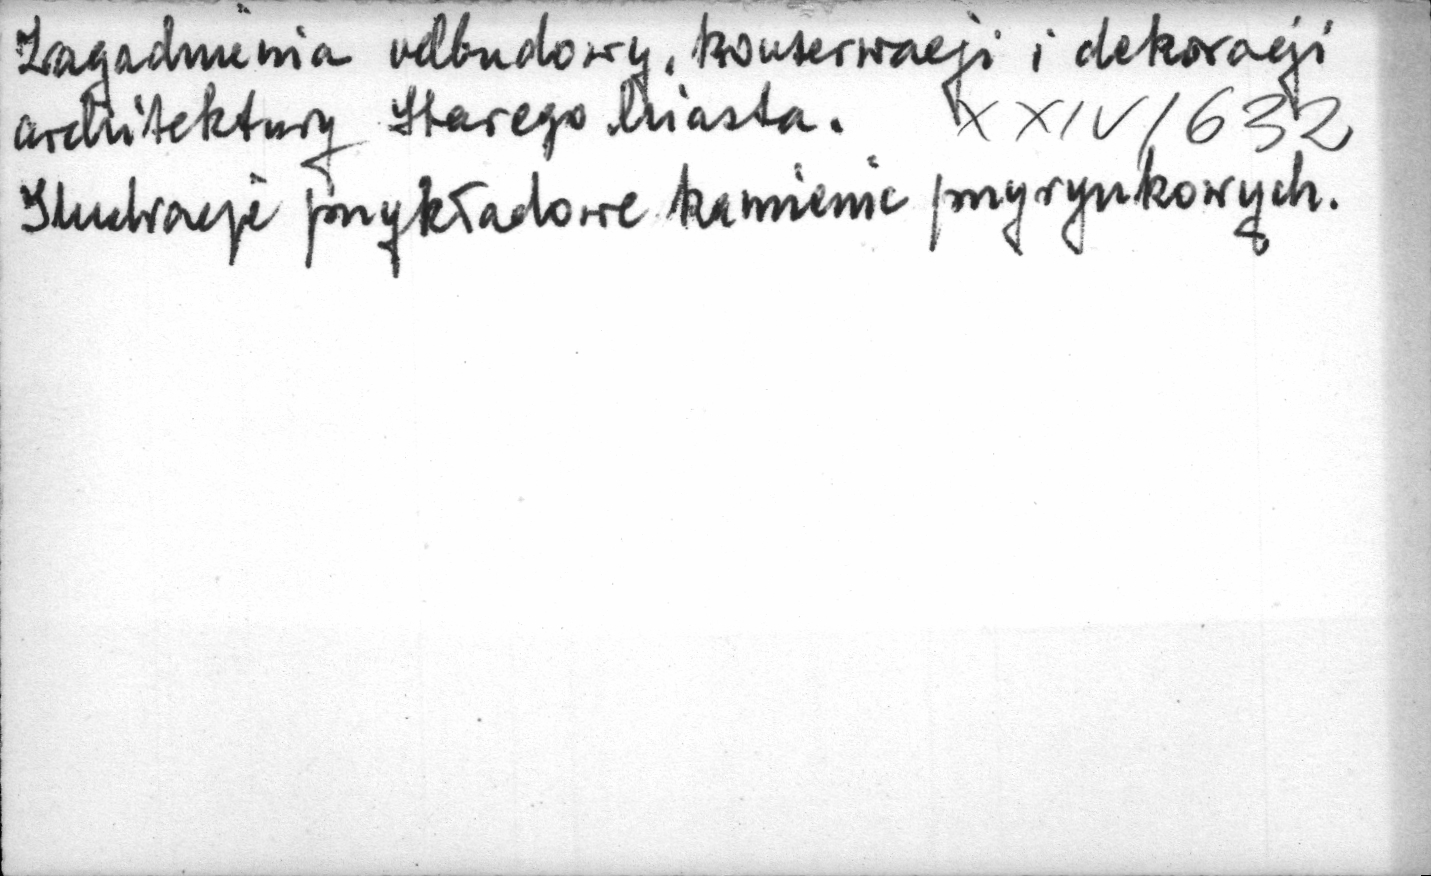 Zagadnienia odbudowy, konserwacji i dekoracji
architektury Starego Miasta. XXIV/632
Ilustracje przykładowe kamienic przyrynkowych.